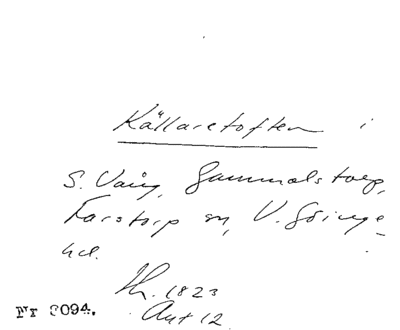 Källaretoften i
S. Vång, Gammalstorp,
Farstorp sn, V. Göinge-
hd.
Th. 1823
Akt 12
Nr 3094.